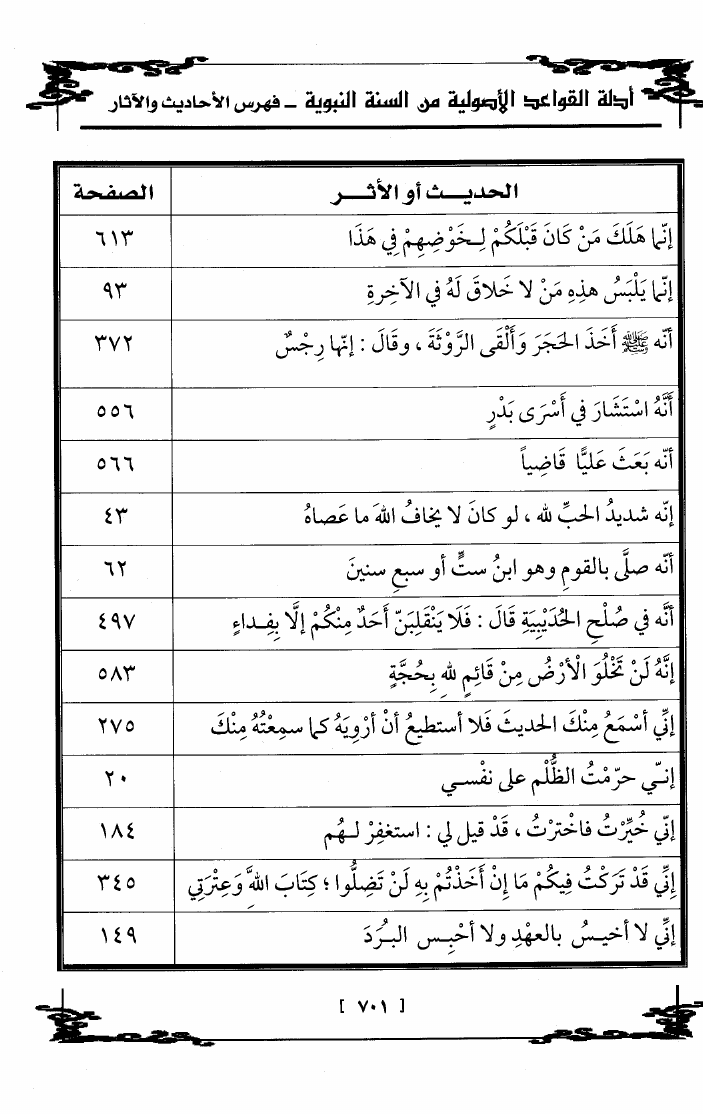 أدلة القواعد الأصولية من السنة النبوية ــ فهرس الأحاديث والآثار
الحديـــث أو الأثـــر الصفحة
إنّما هَلَكَ مَنْ كَانَ قَبْلَكُمْ لِـخَوْضِهِمْ فِي هَذَا ٦١٣
إنّما يَلْبَسُ هذِهِ مَنْ لا خَلاقَ لَهُ في الآخِرةِ ٩٣
أنّه ﷺ أَخَذَ الحَجَرَ وَأَلْقَى الرَّوْثَةَ ، وقَالَ : إنّها رِجْسٌ ٣٧٢
أَنَّهُ اسْتَشَارَ في أَسْرَى بَدْرٍ ٥٥٦
أنّه بَعَثَ عَليًّا قَاضِياً ٥٦٦
إنّه شديدُ الحبِّ لله ، لو كانَ لا يخافُ اللهَ ما عَصاهُ ٤٣
أنّه صلَّى بالقومِ وهو ابنُ ستٍّ أو سبعِ سنينَ ٦٢
أَنَّه في صُلْحِ الحُدَيْبِيَةِ قَالَ : فَلَا يَنْقَلِبَنّ أَحَدٌ مِنْكُمْ إلَّا بِفِـداءٍ ٤٩٧
إنَّهُ لَنْ تَخْلُوَ الْأَرْضُ مِنْ قَائِمٍ للهِ بِحُجَّةٍ ٥٨٣
إنِّي أسْمَعُ مِنْكَ الحديثَ فَلا أستطيعُ أنْ أرْوِيَهُ كما سمِعْتُهُ مِنْكَ ٢٧٥
إنـّي حرّمْتُ الظُّلْم على نفْسـي ٢٠
إنّي خُيِّرْتُ فاخْترْتُ ، قَدْ قيل لي : استغفِرْ لـهُم ١٨٤
إِنِّي قَدْ تَرَكْتُ فِيكُمْ مَا إِنْ أَخَذْتُمْ بِهِ لَنْ تَضِلُّوا ؛ كِتَابَ اللهِ وَعِتْرَتِي ٣٤٥
إنِّي لا أخيـسُ بالعهْدِ ولا أحْبِـس البُـرُدَ ١٤٩
[ ٧٠١ ]